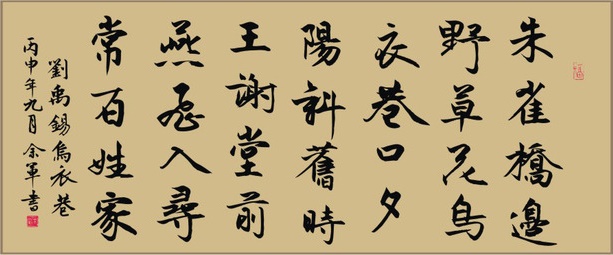 朱雀橋邊
野草花烏
衣巷口夕
陽斜舊時
王謝堂前
燕飛入尋
常百姓家
劉禹錫烏衣巷
丙申年九月余軍書